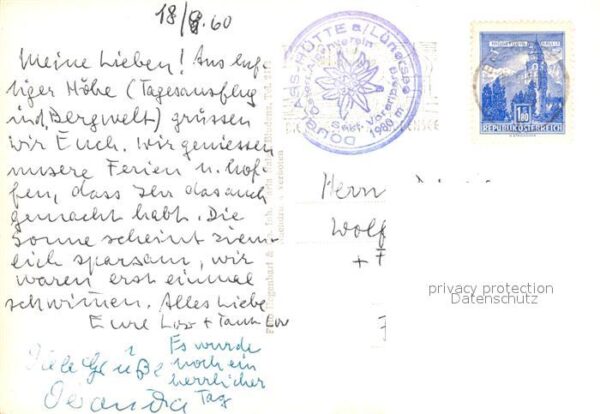 18/8.60
Meine Lieben! Aus luf-
tiger Höhe (Tagesausflug
ind. Bergwelt) grüssen
wir Euch. Wir geniessen
unsere Ferien u. hof-
fen, dass Ihr das auch
gemacht habt. Die
Sonne scheint ziem-
lich sparsam, wir
waren erst einmal
schwimmen. Alles Liebe
Eure + Tante
Viele Grüße
Es wurde
noch ein
herrlicher
Tag
DOUGLASS-HÜTTE a/Lünersee
Sekt. Vorarlberg
1980 m
1.80
REPUBLIK ÖSTERREICH
Herrn
Wolf
+
privacy protection
Datenschutz